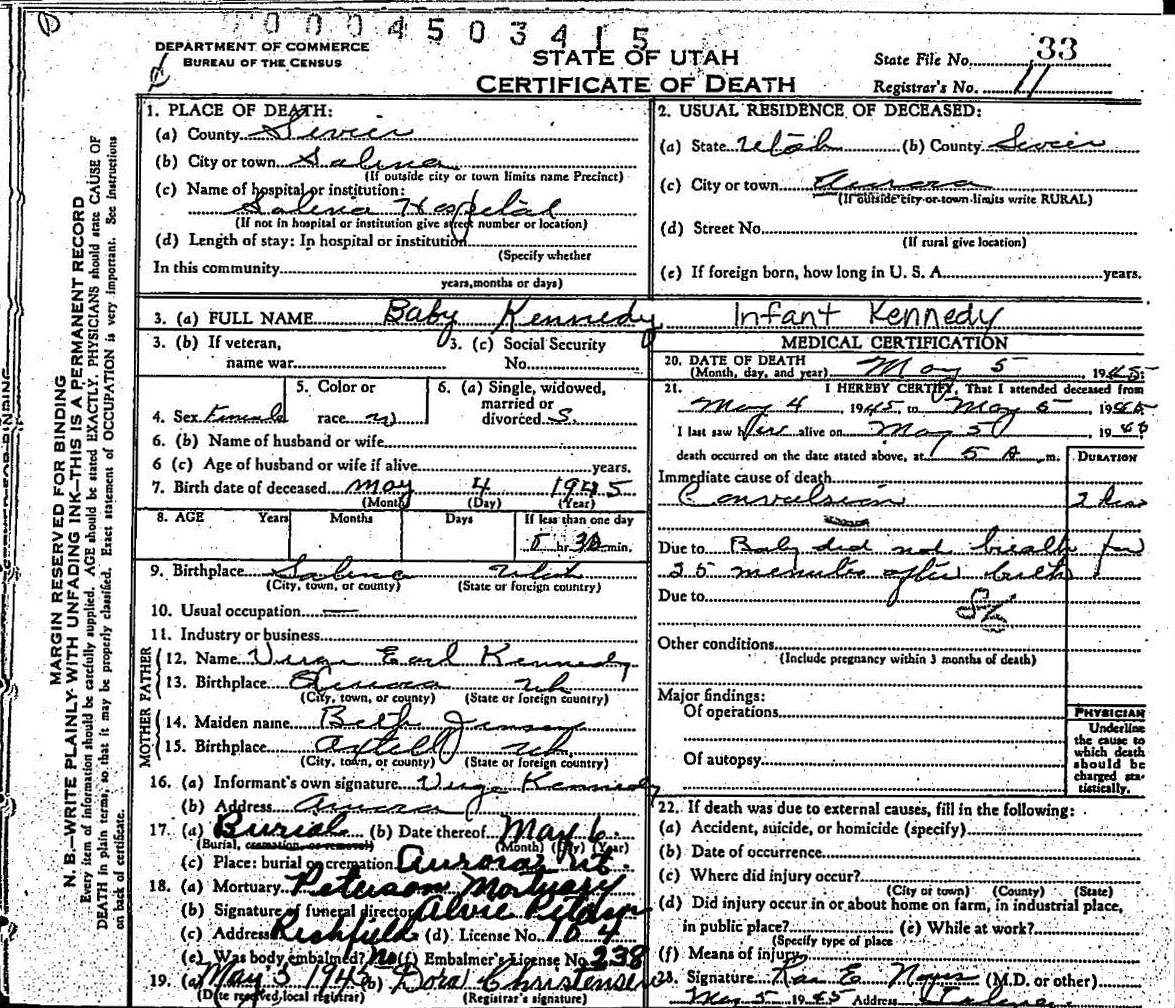 00004503415
DEPARTMENT OF COMMERCE
BUREAU OF THE CENSUS
STATE OF UTAH
CERTIFICATE OF DEATH
State File No. 33
Registrar's No. 11
MARGIN RESERVED FOR BINDING
N. B.—WRITE PLAINLY WITH UNFADING INK—THIS IS A PERMANENT RECORD
Every item of information should be carefully supplied. AGE should be stated EXACTLY. PHYSICIANS should state CAUSE OF
DEATH in plain terms, so that it may be properly classified. Exact statement of OCCUPATION is very important. See instructions
on back of certificate.
1. PLACE OF DEATH:
(a) County Sevier
(b) City or town Salina
(If outside city or town limits name Precinct)
(c) Name of hospital or institution:
Salina Hospital
(If not in hospital or institution give street number or location)
(d) Length of stay: In hospital or institution
(Specify whether
In this community
years, months or days)
2. USUAL RESIDENCE OF DECEASED:
(a) State Utah (b) County Sevier
(c) City or town Aurora
(If outside city or town limits write RURAL)
(d) Street No.
(If rural give location)
(e) If foreign born, how long in U. S. A. years.
3. (a) FULL NAME Baby Kennedy Infant Kennedy
3. (b) If veteran,
name war
3. (c) Social Security
No.
4. Sex Female
5. Color or
race W
6. (a) Single, widowed,
married or
divorced S.
6. (b) Name of husband or wife
6 (c) Age of husband or wife if alive years.
7. Birth date of deceased May 4 1945
(Month) (Day) (Year)
8. AGE Years Months Days If less than one day
5 hr. 30 min.
9. Birthplace Salina Utah
(City, town, or county) (State or foreign country)
10. Usual occupation —
11. Industry or business
FATHER
12. Name Virge Earl Kennedy
13. Birthplace Aurora Ut
(City, town, or county) (State or foreign country)
MOTHER
14. Maiden name Beth Jensen
15. Birthplace Axtell Ut
(City, town, or county) (State or foreign country)
16. (a) Informant's own signature Virge Kennedy
(b) Address Aurora
17. (a) Burial (b) Date thereof May 6
(Burial, cremation, or removal) (Month) (Day) (Year)
(c) Place: burial or cremation Aurora Ut.
18. (a) Mortuary Peterson Mortuary
(b) Signature of funeral director Alvie
(c) Address Richfield (d) License No. 104
(e) Was body embalmed? No (f) Embalmer's License No. 238
19. (a) May 5 1945 (b) Dora Christensen
(Date received, local registrar) (Registrar's signature)
MEDICAL CERTIFICATION
20. DATE OF DEATH
(Month, day, and year) May 5, 1945
21. I HEREBY CERTIFY, That I attended deceased from
May 4, 1945, to May 5, 1945
I last saw her alive on May 5, 1945
death occurred on the date stated above, at 5 A. m.
DURATION
Immediate cause of death
Convulsion 2 hrs
Due to Baby did not breath for
25 minutes after birth
Due to
Other conditions
(Include pregnancy within 3 months of death)
Major findings:
Of operations
Of autopsy
PHYSICIAN
Underline
the cause to
which death
should be
charged sta-
tistically.
22. If death was due to external causes, fill in the following:
(a) Accident, suicide, or homicide (specify)
(b) Date of occurrence
(c) Where did injury occur?
(City or town) (County) (State)
(d) Did injury occur in or about home on farm, in industrial place,
in public place? (e) While at work?
(Specify type of place
(f) Means of injury
23. Signature Rae E. Noyes (M.D. or other)
May 5 1945 Address Salina